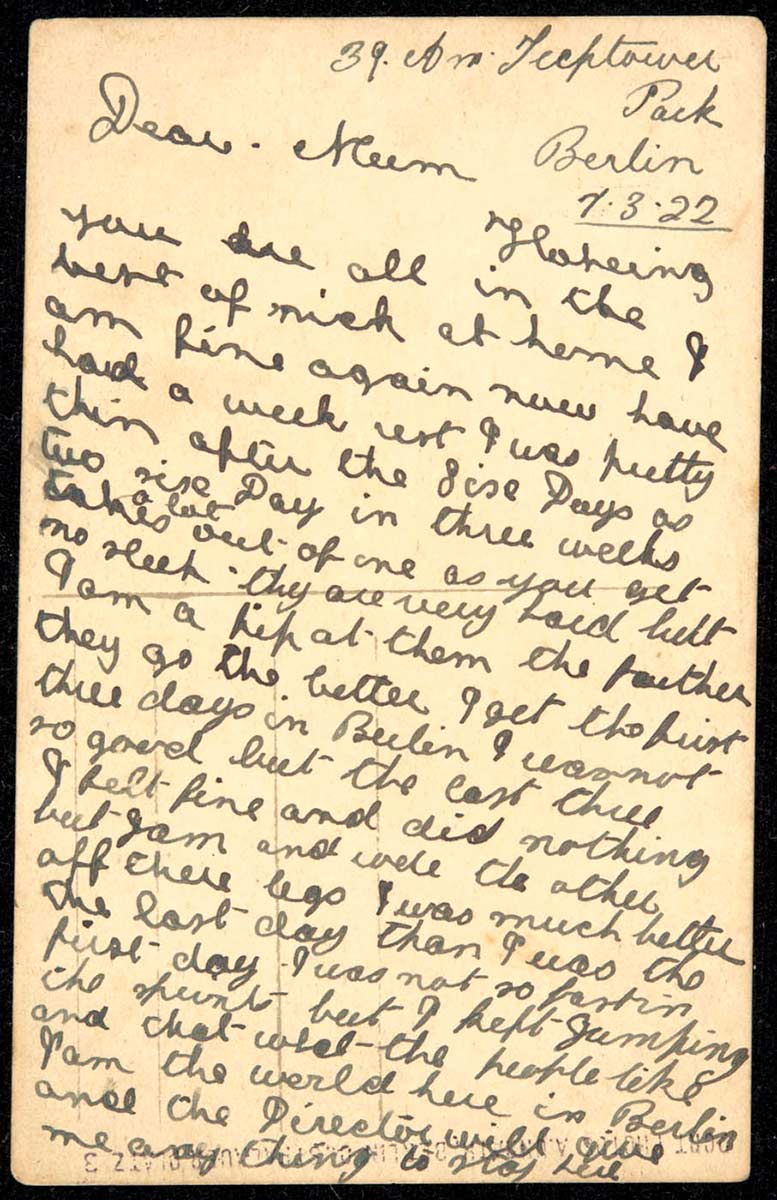 39. Am. Treptower
Park
Berlin
7.3.22
Dear. Mum
Hopeing
you are all in the
best of nick at home I
am fine again now have
had a week rest I was pretty
thin after the Sise Days as
two sise Day in three weeks
takes a lot out of me as you get
no sleep. thy are very hard but
I am a pip at them the farther
they go the better I get the first
three days in Berlin I was not
so good but the last three
I felt fine and did nothing
but Jam and wore the other
off there legs I was much better
the last day than I was the
first day. I was not so fast in
the sprints but I kept Jumping
and that what the people like
I am the world here in Berlin
and the Director will give
me any thing to stop here